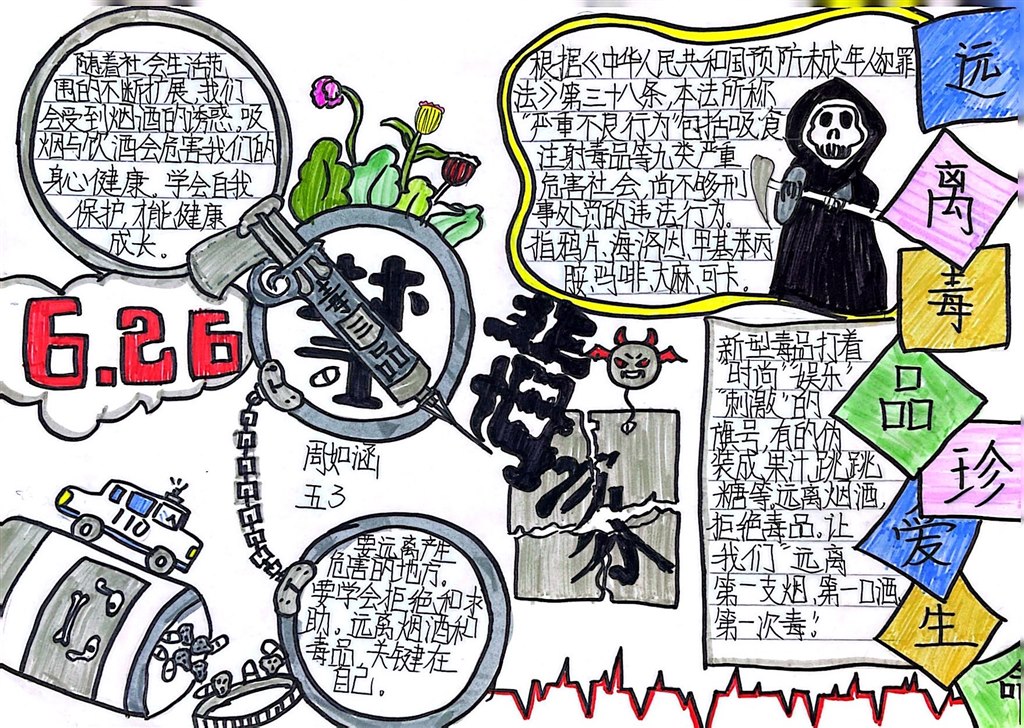 随着社会生活范
围的不断扩展，我们
会受到烟酒的诱惑，吸
烟与饮酒会危害我们的
身心健康。学会自我
保护，才能健康
成长。
根据《中华人民共和国预防未成年人犯罪
法》第三十八条，本法所称
"严重不良行为"包括吸食、
注射毒品等九类严重
危害社会，尚不够刑
事处罚的违法行为。
指鸦片、海洛因、甲基苯丙
胺、吗啡、大麻、可卡。
6.26
禁
毒
品
周如涵
五3
110
要远离产生
危害的地方。
要学会拒绝和求
助。远离烟酒和
毒品，关键在
自己。
新型毒品打着
时尚""娱乐"
"刺激"的
旗号，有的伪
装成果汁，跳跳
糖等，远离烟酒，
拒绝毒品。让
我们"远离
第一支烟，第一口酒，
第一次毒！"
远
离
毒
品
珍
爱
生
命